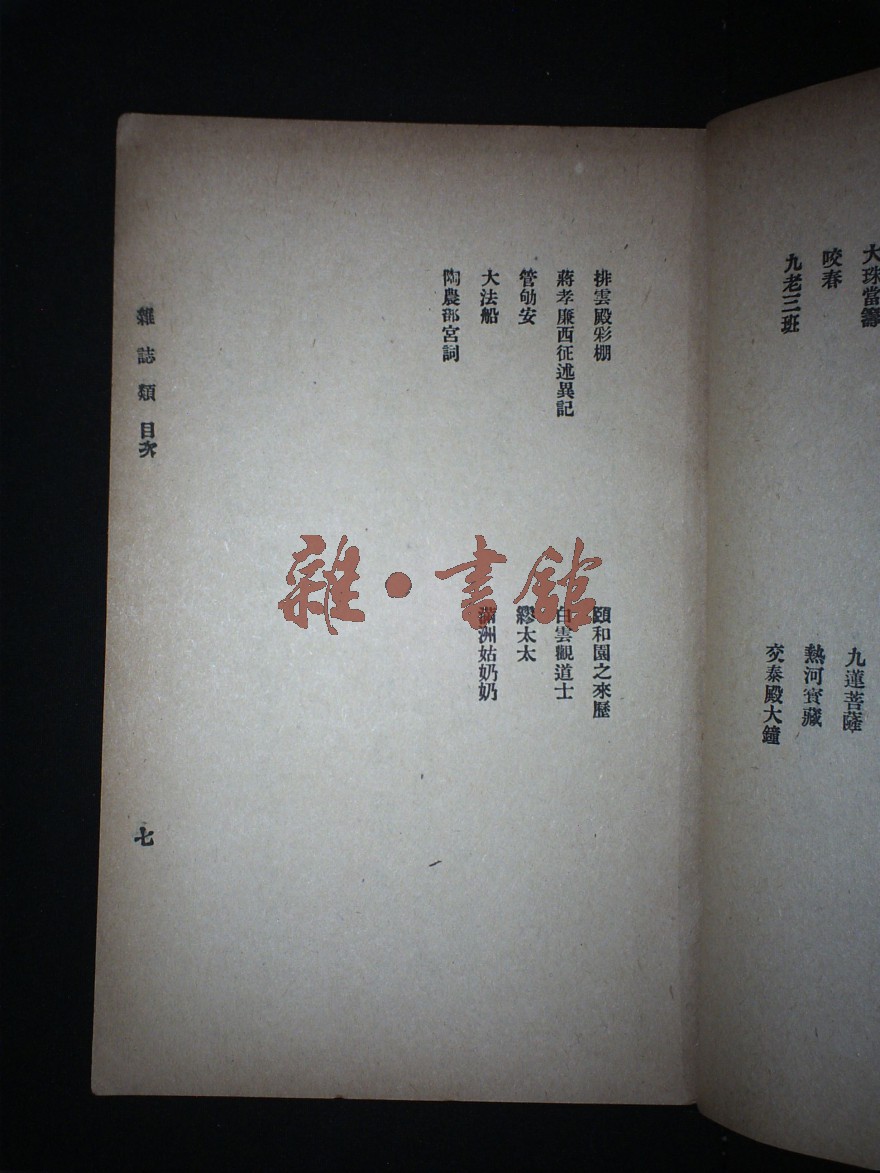 大珠當籌
咬春
九老三班
九蓮菩薩
熱河寳藏
交泰殿大鐘
排雲殿彩棚
蔣孝廉西征述異記
管劬安
大法船
陶農部宮詞
頤和園之來歷
白雲觀道士
繆太太
滿洲姑奶奶
雜誌類 目次
七
雜·書館